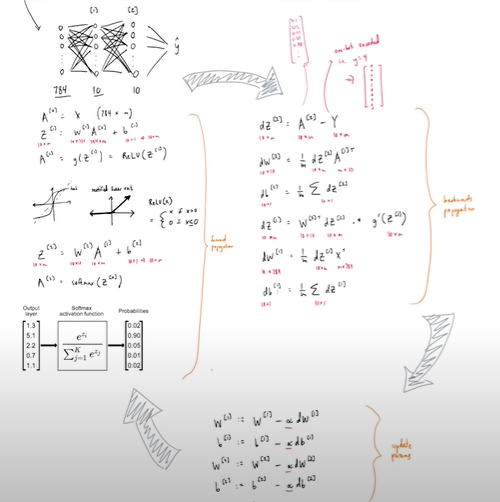 [1] [2]
ŷ
784 10 10
A^[0] = X (784 × m)
Z^[1] = W^[1] A^[0] + b^[1]
10×m 10×784 784×m 10×1 → 10×m
A^[1] = g(Z^[1]) = ReLU(Z^[1])
rectified linear unit
ReLU(x)
= { x if x>0
0 if x≤0
Z^[2] = W^[2] A^[1] + b^[2]
10×m 10×10 10×m 10×1 → 10×m
A^[2] = softmax(Z^[2])
forward
propagation
Output
layer
Softmax
activation function
Probabilities
1.3
5.1
2.2
0.7
1.1
e^{z_i}
∑_{j=1}^{K} e^{z_j}
0.02
0.90
0.05
0.01
0.02
one-hot encoded
i.e. y=4
→
dZ^[2] = A^[2] − Y
10×m 10×m 10×m
dW^[2] = 1/m dZ^[2] A^[1]T
10×10 10×m m×10
db^[2] = 1/m Σ dZ^[2]
10×1 10×1
dZ^[1] = W^[2]T dZ^[2] .* g'(Z^[1])
10×m 10×10 10×m 10×m
dW^[1] = 1/m dZ^[1] X^T
10×784 10×m m×784
db^[1] = 1/m Σ dZ^[1]
10×1 10×1
backwards
propagation
W^[1] := W^[1] − α dW^[1]
b^[1] := b^[1] − α db^[1]
W^[2] := W^[2] − α dW^[2]
b^[2] := b^[2] − α db^[2]
update
params